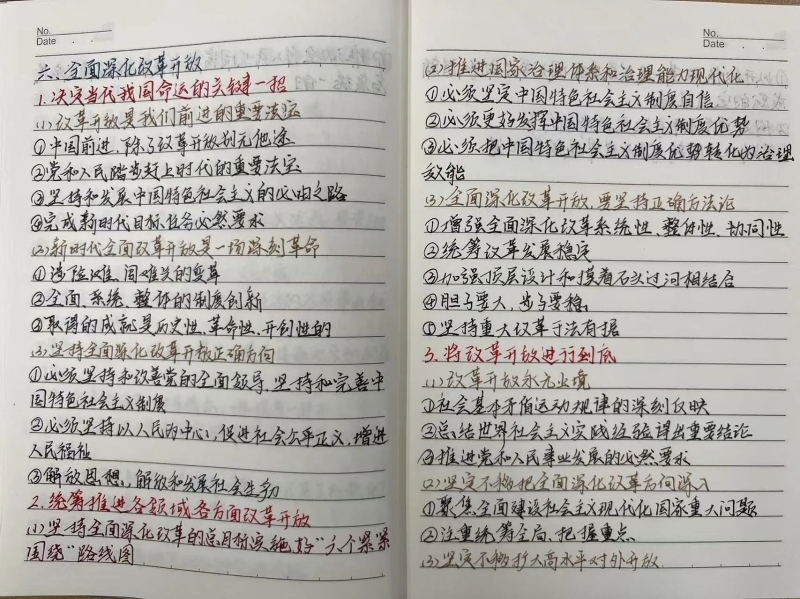 No.
Date
六、全面深化改革开放
1.决定当代我国命运的关键一招
(1)改革开放是我们前进的重要法宝
①中国前进,除了改革开放别无他途
②党和人民踏步赶上时代的重要法宝
③坚持和发展中国特色社会主义的必由之路
④完成新时代目标任务必然要求
(2)新时代全面改革开放是一场深刻革命
①涉险滩、闯难关的变革
②全面、系统、整体的制度创新
③取得的成就是历史性、革命性、开创性的
(3)坚持全面深化改革开放正确方向
①必须坚持和改善党的全面领导,坚持和完善中
国特色社会主义制度
②必须坚持以人民为中心,促进社会公平正义,增进
人民福祉
③解放思想、解放和发展社会生力
2.统筹推进各领域各方面改革开放
(1)坚持全面深化改革的总目标实施好“六个紧紧
围绕”路线图
No.
Date
(2)推进国家治理体系和治理能力现代化
①必须坚定中国特色社会主义制度自信
②必须更好发挥中国特色社会主义制度优势
③必须把中国特色社会主义制度优势转化为治理
效能
(3)全面深化改革开放,要坚持正确方法论
①增强全面深化改革系统性、整体性、协同性
②统筹改革发展稳定
③加强顶层设计和摸着石头过河相结合
④胆子要大,步子要稳
⑤坚持重大改革于法有据
3.将改革开放进行到底
(1)改革开放永无止境
①社会基本矛盾运动规律的深刻反映
②总结世界社会主义实践经验得出重要结论
③推进党和人民事业发展的必然要求
(2)坚定不移把全面深化改革方向深入
①聚焦全面建设社会主义现代化国家重大问题
②注重统筹全局、把握重点
(3)坚定不移扩大高水平对外开放